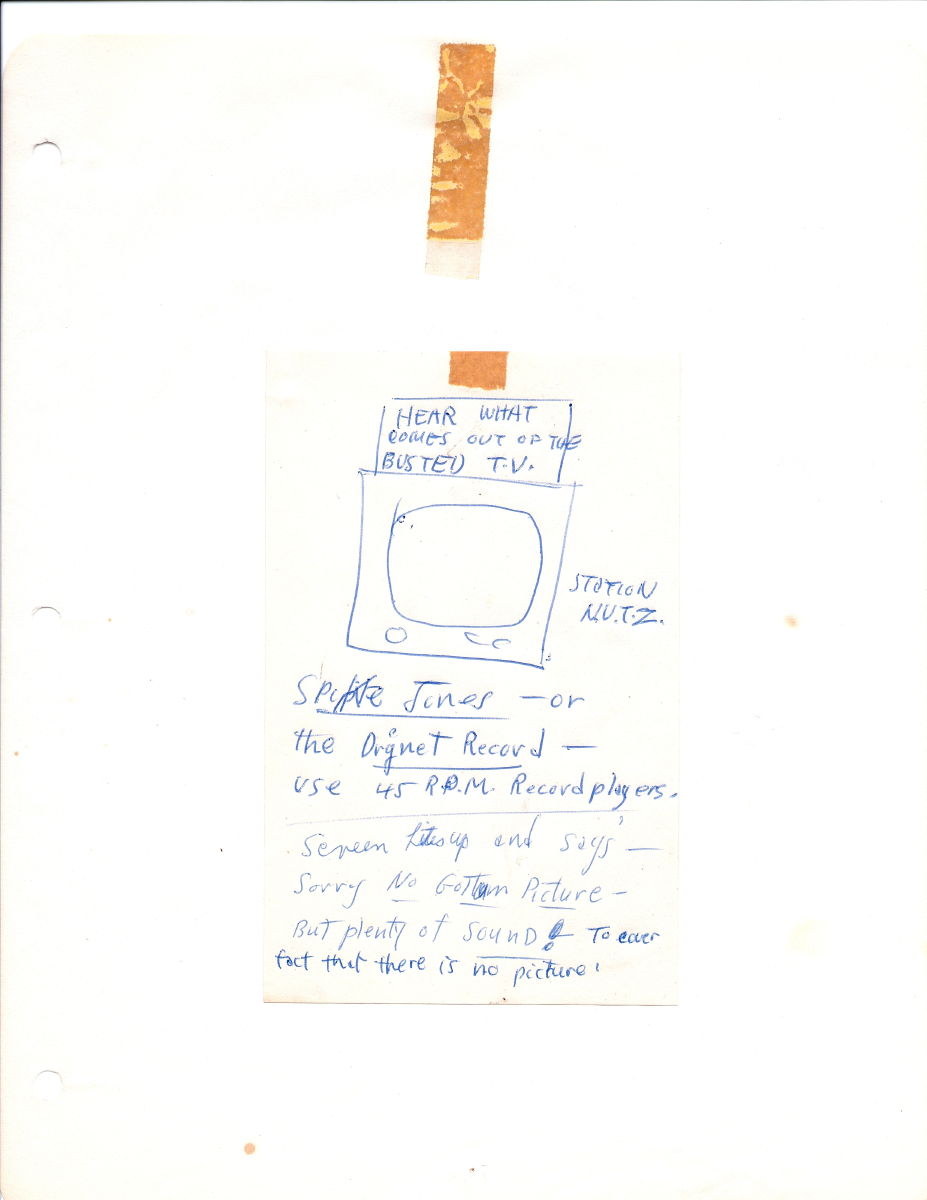 HEAR WHAT
COMES OUT OF THE
BUSTED T.V.
STATION
N.U.T.Z.
Spike Jones — or
the Dragnet Record —
use 45 R.P.M. Record players.
Screen Lites up and says —
Sorry No Gottum Picture —
But plenty of SOUND! To cover
fact that there is no picture.